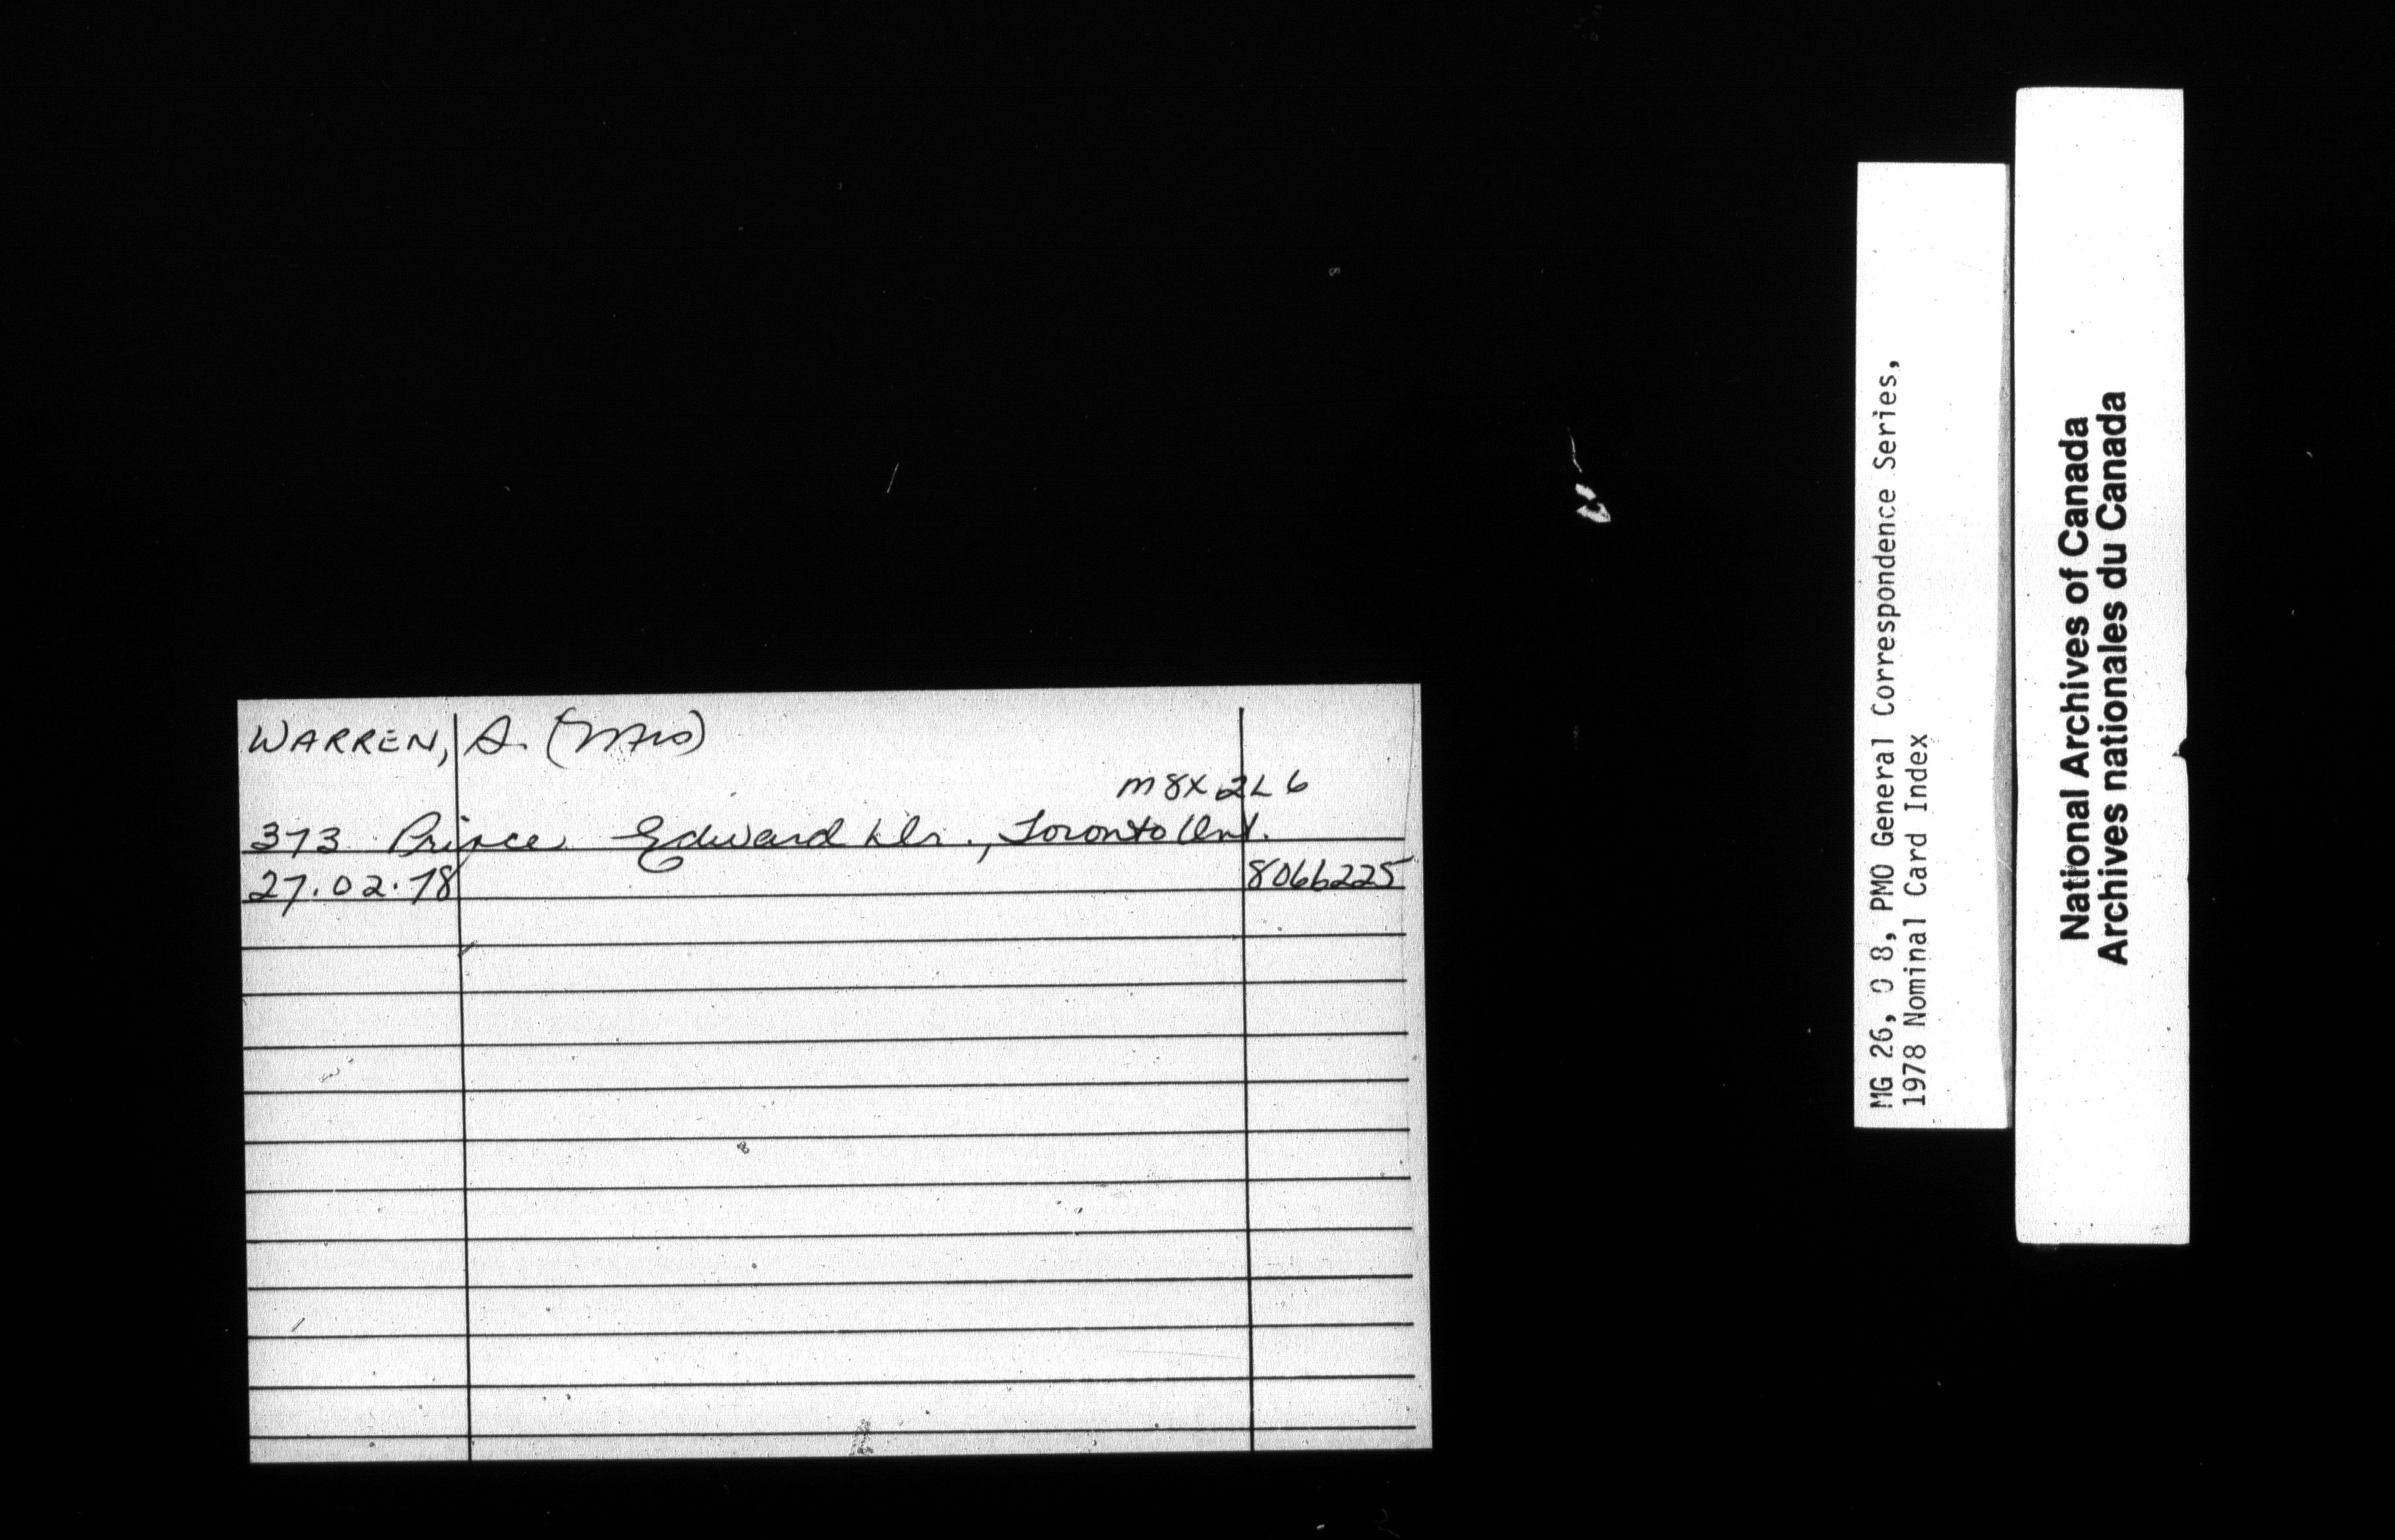 WARREN, A. (Mrs)
M8X 2L6
373 Prince Edward Dr., Toronto Ont.
27.02.78 8066225
MG 26, O 8, PMO General Correspondence Series,
1978 Nominal Card Index
National Archives of Canada
Archives nationales du Canada